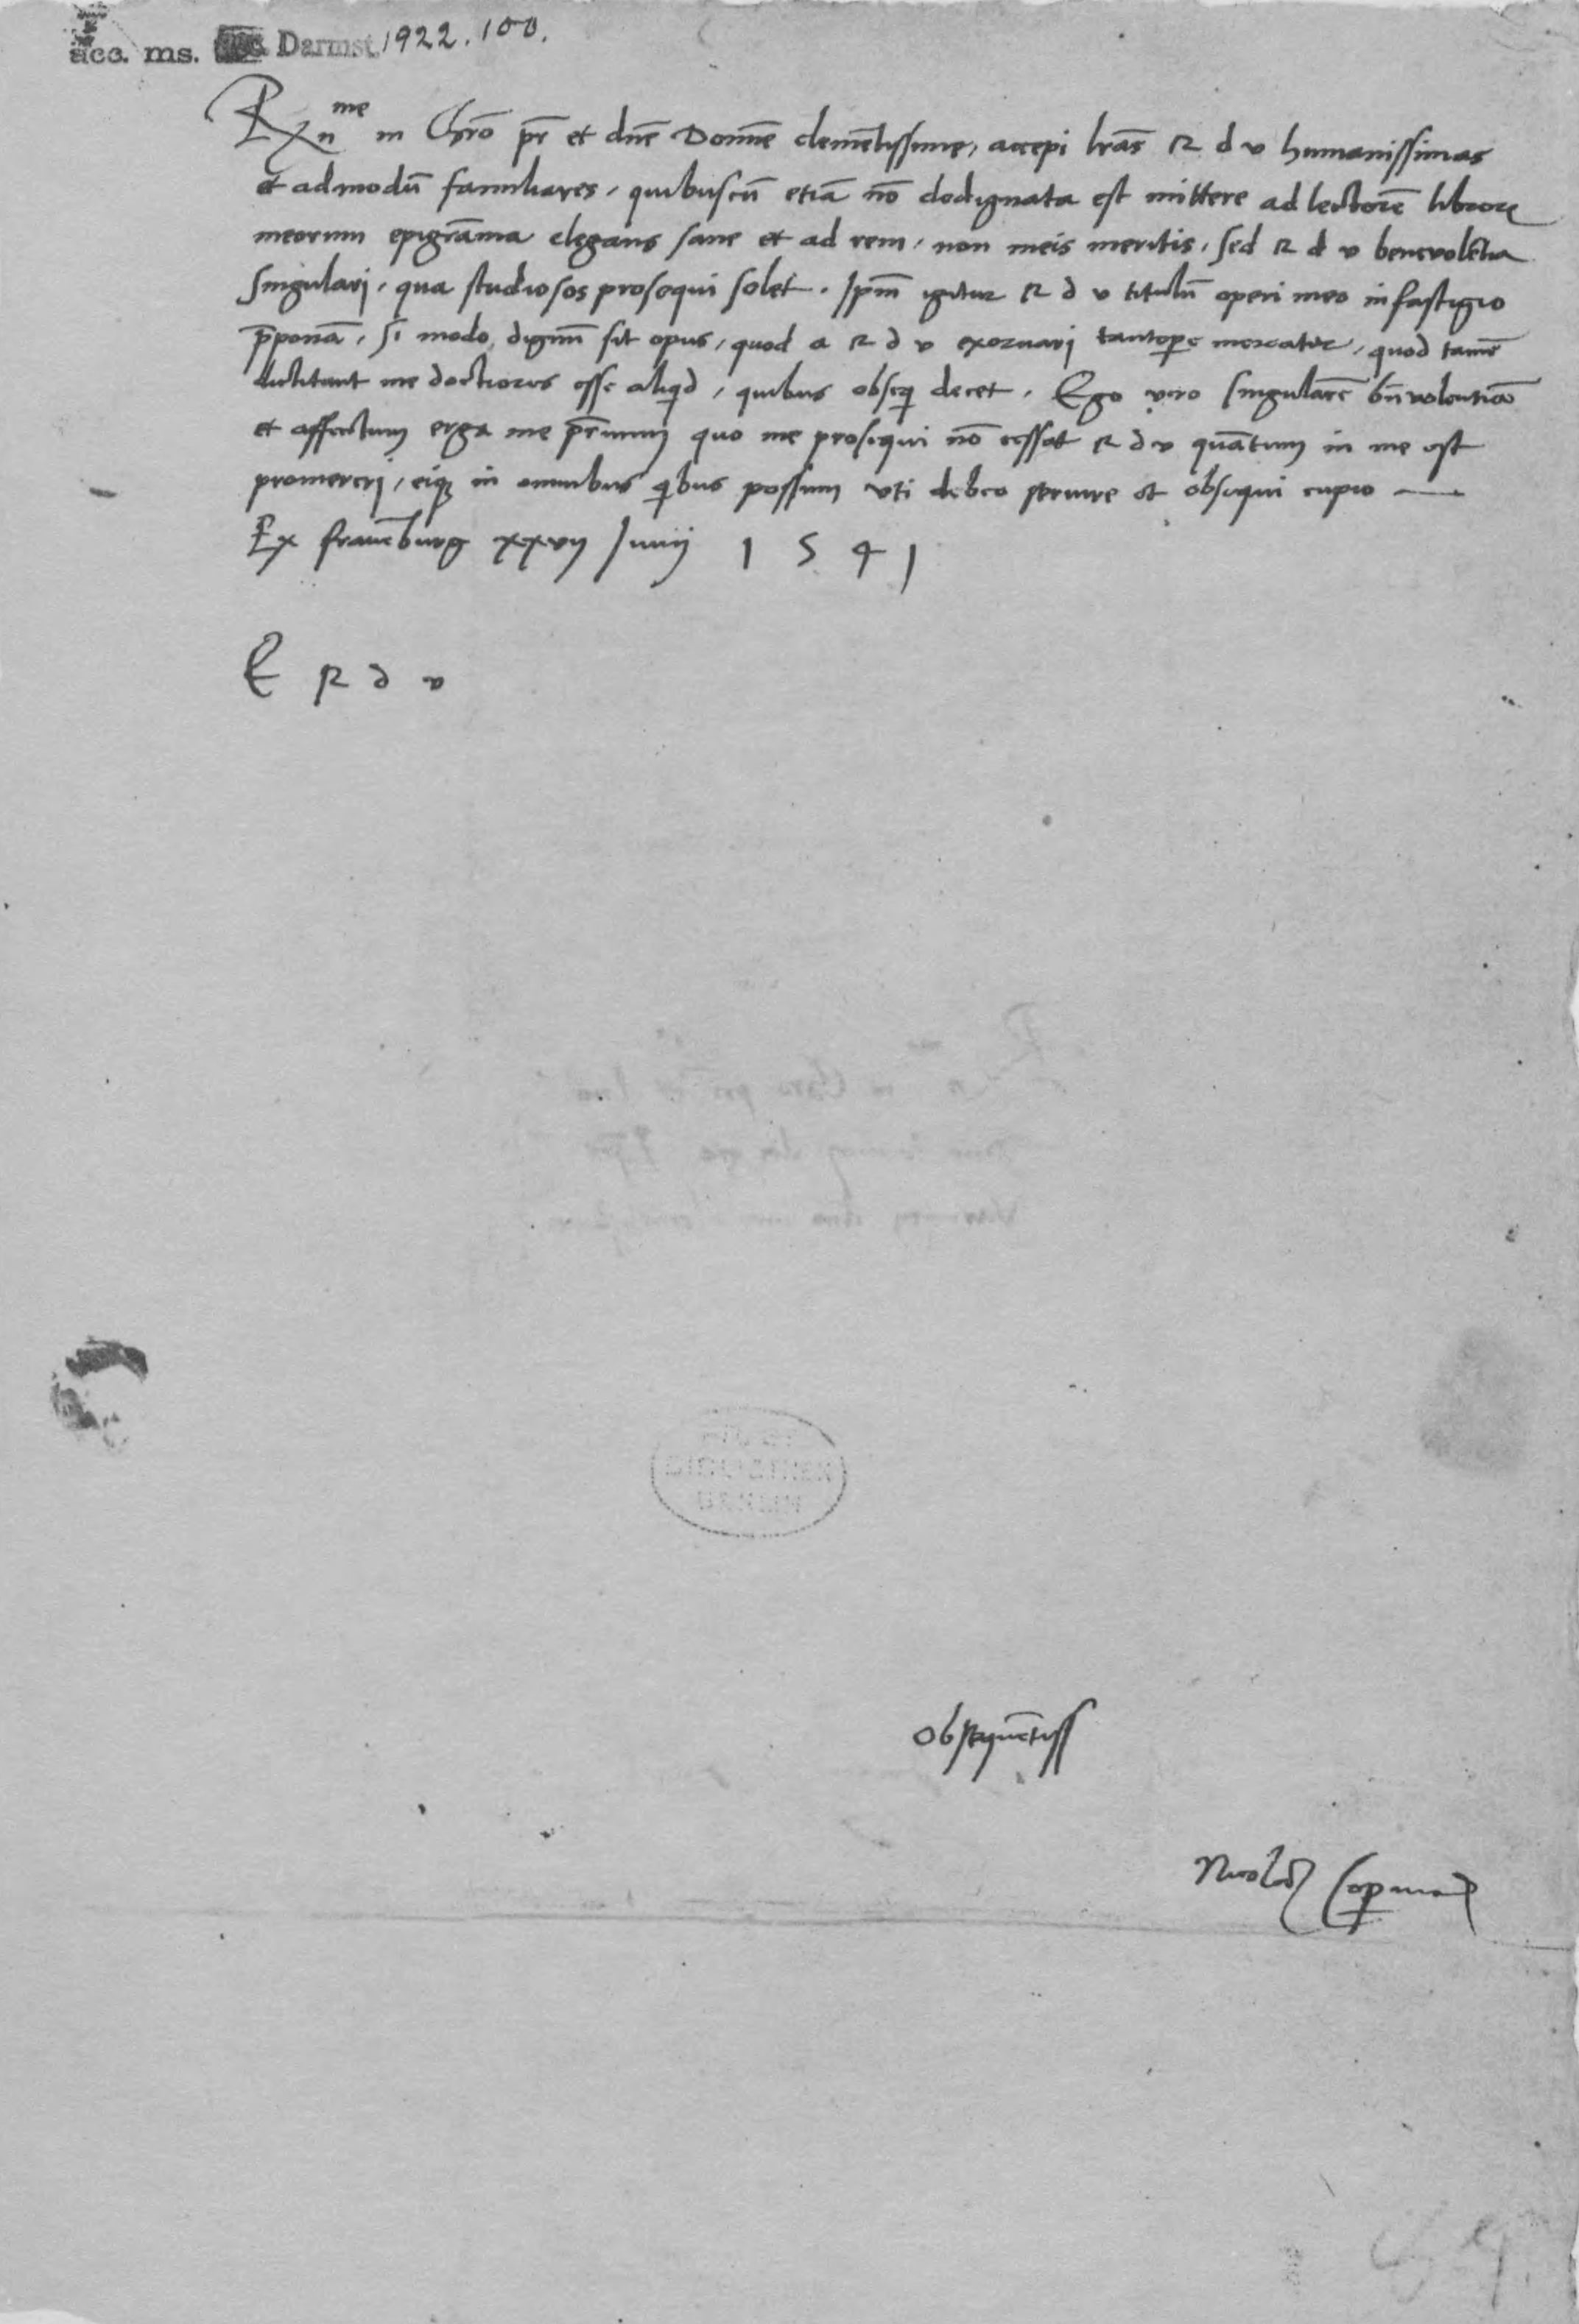 acc. ms. Darmst. 1922.100.
Rx̄n me in Chr̄o pr̄ et dn̄e Domīne clemētissime, accepi lr̄as R d v humanissimas
et admodū familiares, quibuscū etiā nō dedignata est mittere ad lectorē librorꝝ
meorum epigrāma elegans sane et ad rem, non meis meritis, sed R d v benevolētia
singulari, qua studiosos prosequi solet. Ipm̄ igitur R d v titulū operi meo in fastigio
p̄ponā, si modo dignū sit opus, quod a R d v exornari tantopꝑe mereatur, quod tamē
dictitant me doctiores esse aliqd, quibus obseq decet. Ego vero singularē bn̄volentiā
et affectum erga me pr̄num quo me prosequi nō cessat R d v quātum in me est
promereri, eiqꝫ in omnibus qbus possum uti debeo servire et obsequi cupio —
Ex frauēburg xxvij Junij 1541
E R d v
STAATS
BIBLIOTHEK
BERLIN
obsequētiss
Nicolaꝰ Copꝑnicꝰ